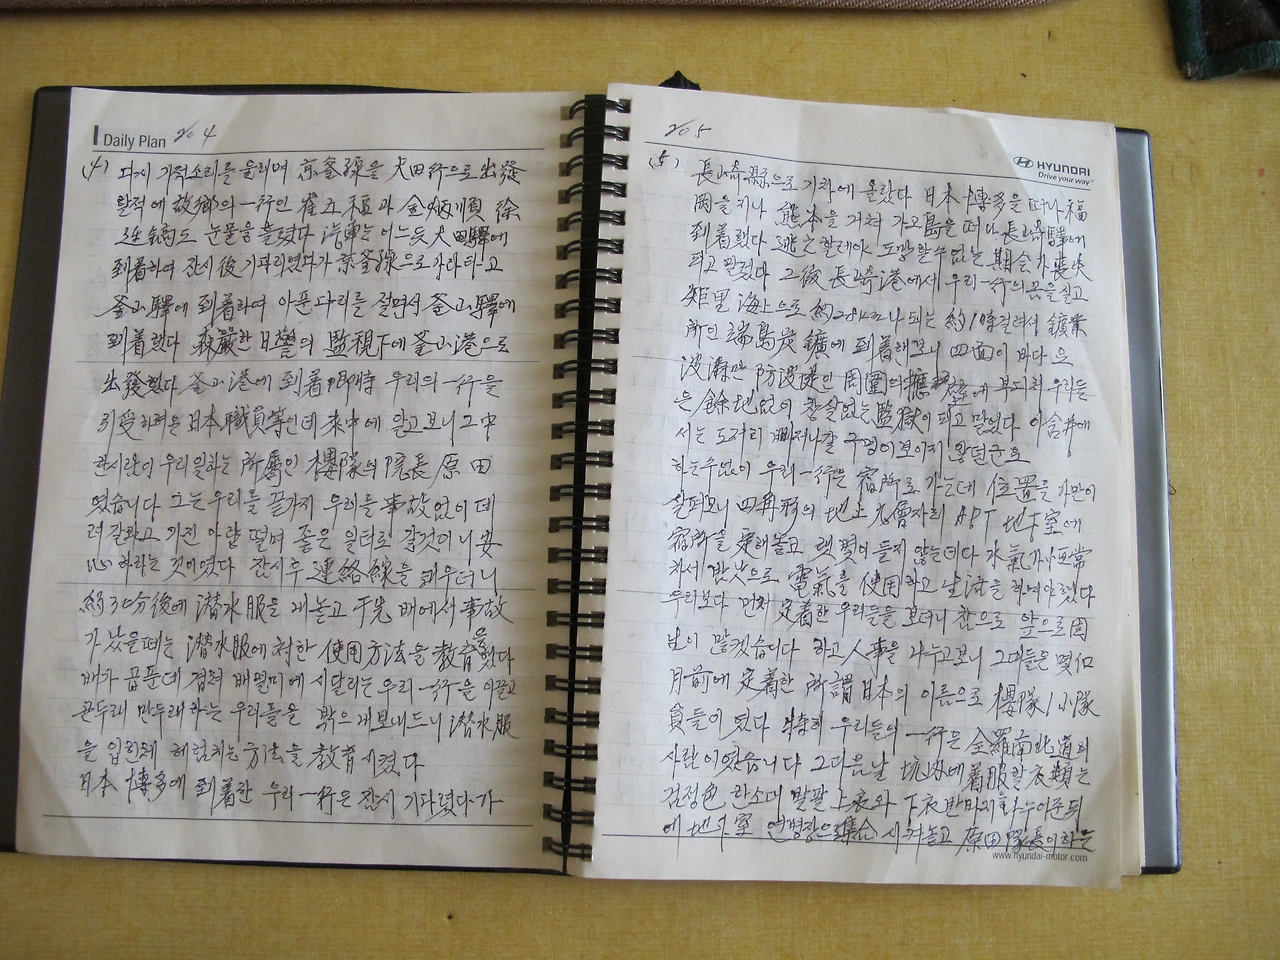 Daily Plan no 4
(4) 다시 기적소리를 울리며 京釜線을 大田行으로 出發
할적에 故鄕의 一行인 崔五福과 金炳順 徐
도 눈물을 흘렸다 汽車는 어느듯 大田驛에
到着하여 잠시 後 기다리였다가 京釜線으로 가라타고
釜山驛에 到着하여 아픈다리를 절면서 釜山驛에
到着했다 森嚴한 日警의 監視下에 釜山港으로
出發했다 釜山港에 到着 卽時 우리의 一行을
引受하려온 日本職員等인데 來中에 알고보니 그中
한사람이 우리일하는 所屬인 櫻隊의 院長 原田
였습니다 그는 우리를 끝가지 우리들 事故없이 데
려갈라고 가진 아량 떨며 좋은 일터로 갈것이니 安
心하라는 것이였다 잠시후 連絡線을 태우더니
約30分後에 潛水服을 내놓고 于先 배에서 事故
가 났을때는 潛水服에 處한 使用方法을 敎育을 했다
배가 곱푼데 겹쳐 배멀미에 시달리는 우리 一行을 이끌고
곤두래 만두래 하는 우리들을 밖으 내보내드니 潛水服
을 입은체 헤엄치는 方法을 敎育시켰다
日本 博多에 到着한 우리 一行은 잠시 기다렸다가
no 5
HYUNDAI
Drive your way
(5) 長崎縣으로 기차에 올랐다 日本 博多을 떠나 福
岡을 지나 熊本을 거쳐 가고島을 떠나 長崎驛에
到着했다 逃亡할레야 도망할수없는 期會가 喪失
되고 말렀다 그後 長崎港에서 우리 一行의 몸을 실고
矩里 海上으로 約28km나 되는 約1時걸려서 鑛業
所인 端島炭鑛에 到着해보니 四面이 바다은
波濤만 防波堤인 周圍의 壁에 부디처 우리들
은 餘地없이 창살없는 監獄이 되고 말었다 이
서는 도저히 빠저나갈 구멍이 보이지 않던군요
하는수없이 우리 一行는 宿所로 가는데 位置를 가만이
살펴보니 四角形의 地上九層자리 APT 地下室에
宿所을 定해놓고 햇볓이 들지 않는데다 水氣가 非常
차서 밤낮으로 電氣를 使用하고 生活을 하여야했다
우리보다 먼저 定着한 우리들을 보더니 참으로 앞으로 困
남이 많겠습니다 하고 人事을 나누고보니 그미들은 몇個
月前에 定着한 所謂 日本의 이름으로 櫻隊 1小隊
員들이 였다 特히 우리들의 一行은 全羅南北道의
사람이였습니다 그다음날 坑內에 着服할 衣類는
검정色 란소대 발팔 上衣와 下衣 반바지을 나누어준뒤
에 地下室 연병장으로 集合 시켜놓고 原田隊長이하는
www.hyundai-motor.com